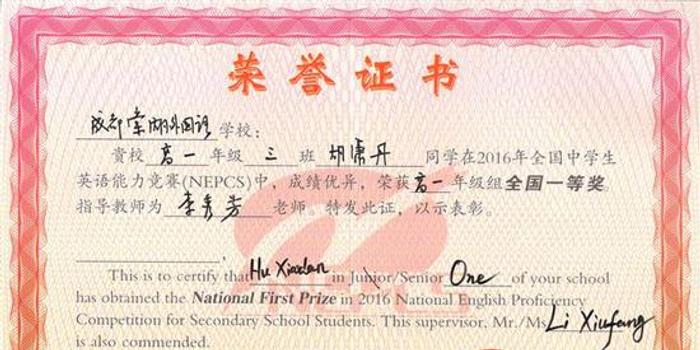 荣誉证书
成都棠湖外国语学校：
贵校高一年级三班胡丹同学在2016年全国中学生
英语能力竞赛(NEPCS)中，成绩优异，荣获高一年级组全国一等奖。
指导教师为李秀芳老师。特发此证，以示表彰。
This is to certify that Hu Xiaodan in Junior/Senior One of your school
has obtained the National First Prize in 2016 National English Proficiency
Competition for Secondary School Students. This supervisor, Mr./Ms. Li Xiufang
is also commended.